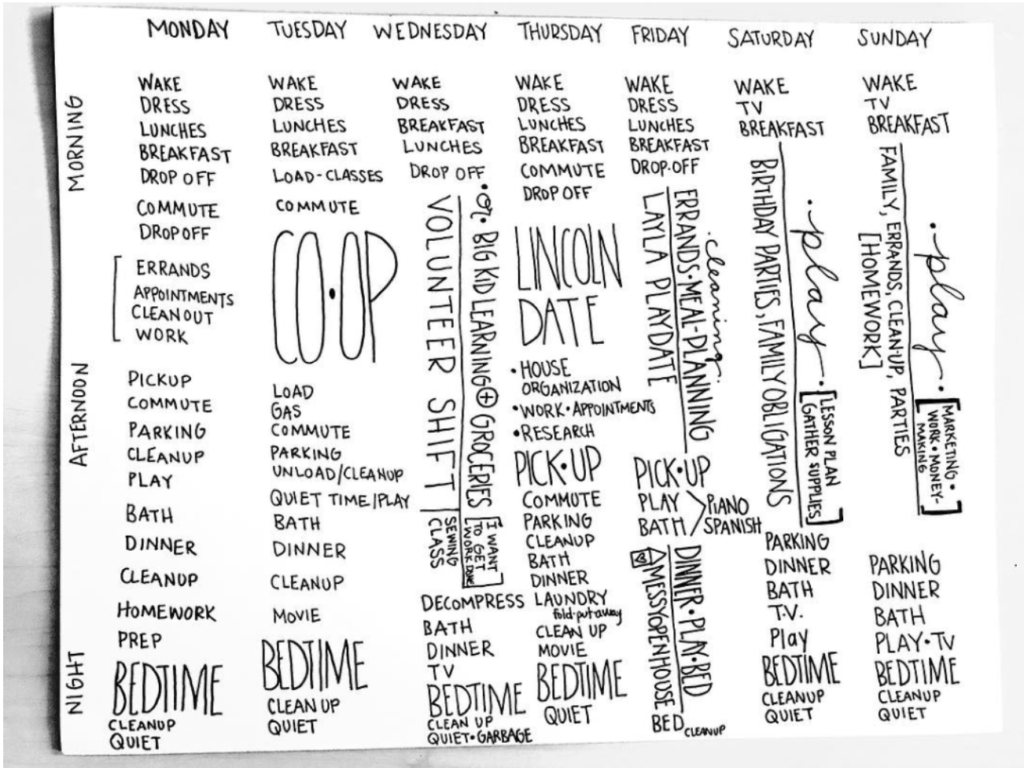 MONDAY TUESDAY WEDNESDAY THURSDAY FRIDAY SATURDAY SUNDAY
MORNING
AFTERNOON
NIGHT
WAKE
DRESS
LUNCHES
BREAKFAST
DROP OFF
COMMUTE
DROP OFF
ERRANDS
APPOINTMENTS
CLEAN OUT
WORK
PICKUP
COMMUTE
PARKING
CLEANUP
PLAY
BATH
DINNER
CLEANUP
HOMEWORK
PREP
BEDTIME
CLEANUP
QUIET
WAKE
DRESS
LUNCHES
BREAKFAST
LOAD-CLASSES
COMMUTE
CO•OP
LOAD
GAS
COMMUTE
PARKING
UNLOAD/CLEANUP
QUIET TIME/PLAY
BATH
DINNER
CLEANUP
MOVIE
BEDTIME
CLEAN UP
QUIET
WAKE
DRESS
BREAKFAST
LUNCHES
DROP OFF
•or• BIG KID LEARNING + GROCERIES
VOLUNTEER SHIFT
[I WANT
TO GET
WORK DONE]
SEWING
CLASS
DECOMPRESS
BATH
DINNER
TV
BEDTIME
CLEAN UP
QUIET•GARBAGE
WAKE
DRESS
LUNCHES
BREAKFAST
COMMUTE
DROP OFF
LINCOLN
DATE
•HOUSE
ORGANIZATION
•WORK•APPOINTMENTS
•RESEARCH
PICK•UP
COMMUTE
PARKING
CLEANUP
BATH
DINNER
LAUNDRY
fold-put away
CLEAN UP
MOVIE
BEDTIME
QUIET
WAKE
DRESS
LUNCHES
BREAKFAST
DROP-OFF
•cleaning•
ERRANDS•MEAL-PLANNING
LAYLA PLAYDATE
PICK•UP
PLAY
BATH
PIANO
SPANISH
DINNER•PLAY•BED
MESSYOPENHOUSE
BED
CLEANUP
WAKE
TV
BREAKFAST
•play•
BIRTHDAY PARTIES, FAMILY OBLIGATIONS
[LESSON PLAN
GATHER SUPPLIES]
PARKING
DINNER
BATH
T.V.
Play
BEDTIME
CLEANUP
QUIET
WAKE
TV
BREAKFAST
•play•
FAMILY, ERRANDS, CLEAN-UP, PARTIES
[HOMEWORK]
[MARKETING•
WORK•MONEY-
MAKING]
PARKING
DINNER
BATH
PLAY•TV
BEDTIME
CLEANUP
QUIET